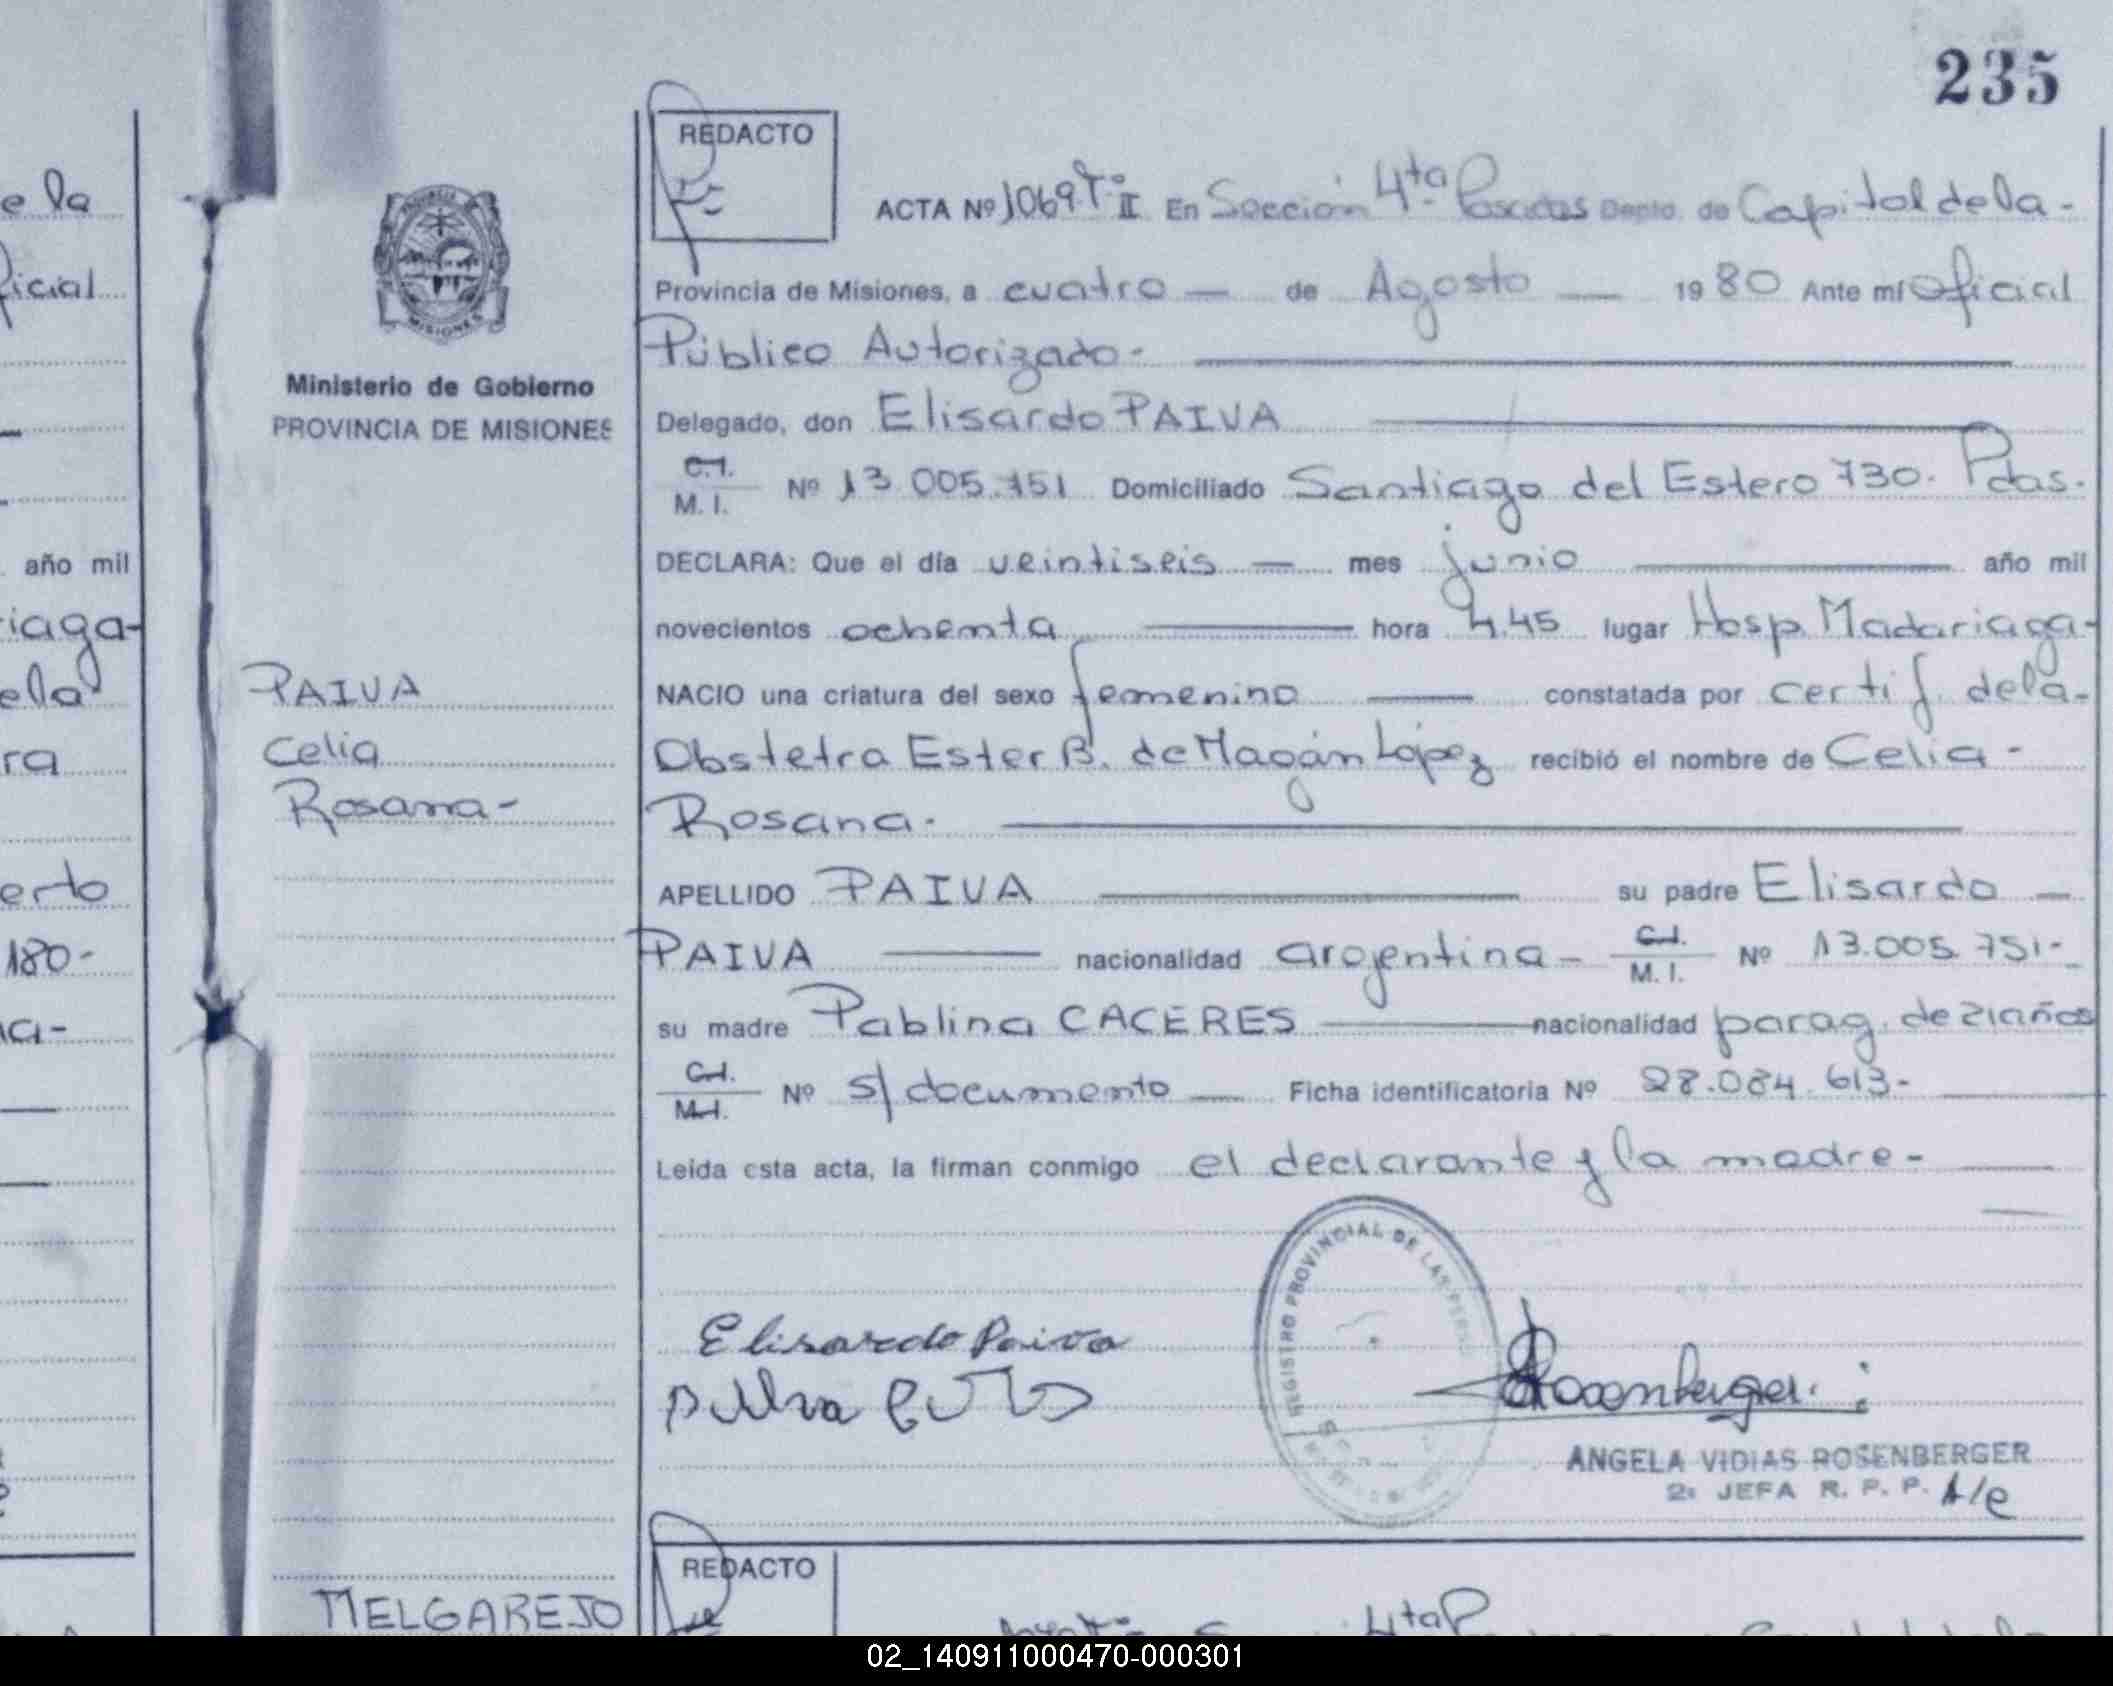 235
e la
ficial
año mil
riaga-
ela
ra
erto
180-
a-
PROVINCIA DE MISIONES
Ministerio de Gobierno
PROVINCIA DE MISIONES
PAIVA
Celia
Rosana-
REDACTO
ACTA Nº 1069 Tº II En Sección 4ta Posadas Depto. de Capital de la-
Provincia de Misiones, a cuatro — de Agosto — 1980 Ante mí Oficial
Público Autorizado-
Delegado, don Elisardo PAIVA
C.I.
M. I. Nº 13.005.751 Domiciliado Santiago del Estero 730. Pdas.
DECLARA: Que el día veintiseis — mes junio — año mil
novecientos ochenta — hora 4.45 lugar Hosp. Madariaga-
NACIO una criatura del sexo femenino — constatada por certif. de la-
Obstetra Ester B. de Magán López recibió el nombre de Celia-
Rosana.
APELLIDO PAIVA — su padre Elisardo —
PAIVA — nacionalidad argentina- C.I. M. I. Nº 13.005.751-
su madre Pablina CACERES — nacionalidad parag. de 21 años
C.I. M.I. Nº s/documento — Ficha identificatoria Nº 28.084.613-
Leida esta acta, la firman conmigo el declarante y la madre-
REGISTRO PROVINCIAL DE LAS PERSO
Elisardo Paiva
Rosenberger
ANGELA VIDIAS ROSENBERGER
2ª JEFA R. P. P. A/e
REDACTO
MELGAREJO
4ta P
02_140911000470-000301